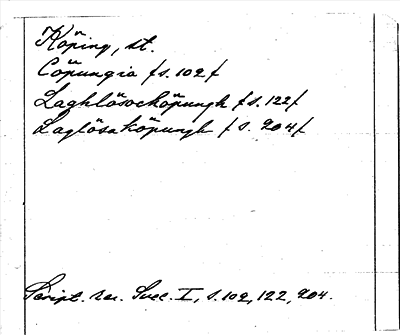 Köping, st.
Cöpungia /s. 102/
Laghlösockköpungh /s. 122/
Laglösaköpungh /s. 204/
Script. rer. Svec. I, s. 102, 122, 204.